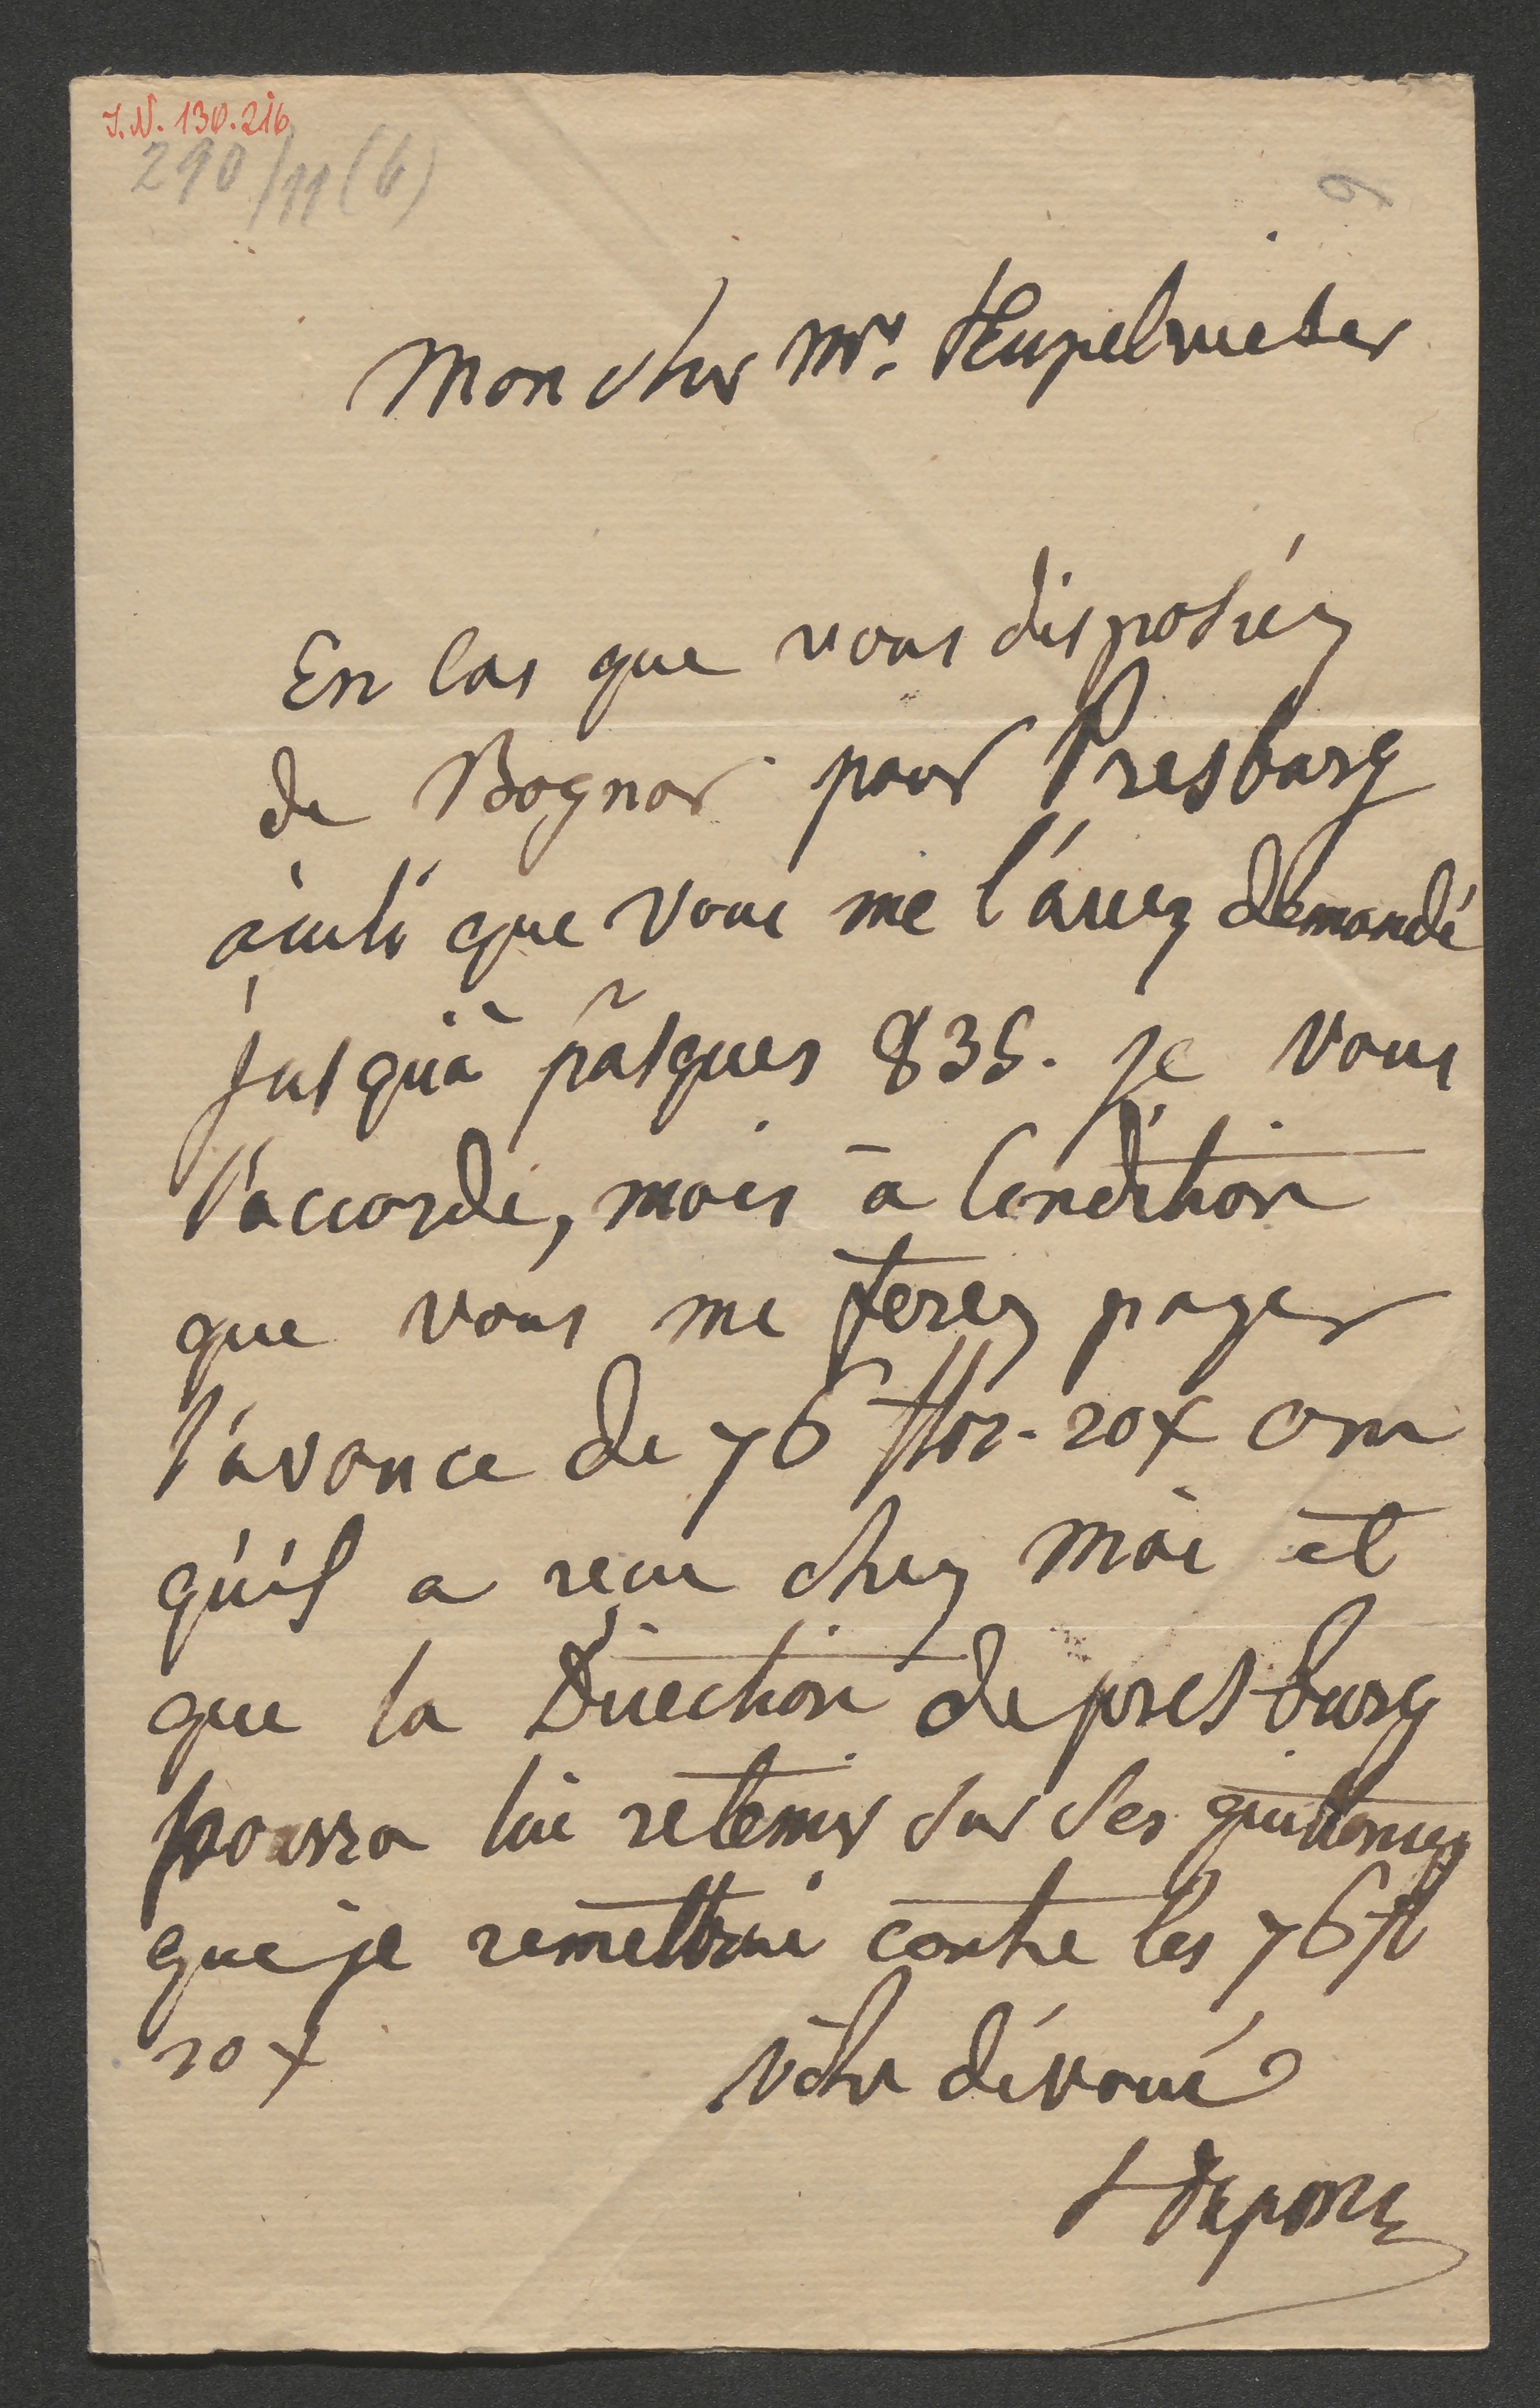 I.N. 130.216
290/11 (6)
6
Mon cher Mr. Kupelwieser
En cas que vous disposiéz
de Bognar pour Presburg
ainsi que vous me l'avez demandé
jusqu'à pâsques 835. je vous
l'accorde, mais à Condition
que vous me ferez payer
l'avance de 76 flor. 20x
qu'il a reçu chez moi et
que la Direction de presburg
pourra lui retenir sur ses
que je remettrai contre les 76 fl
20x
Votre dévoué